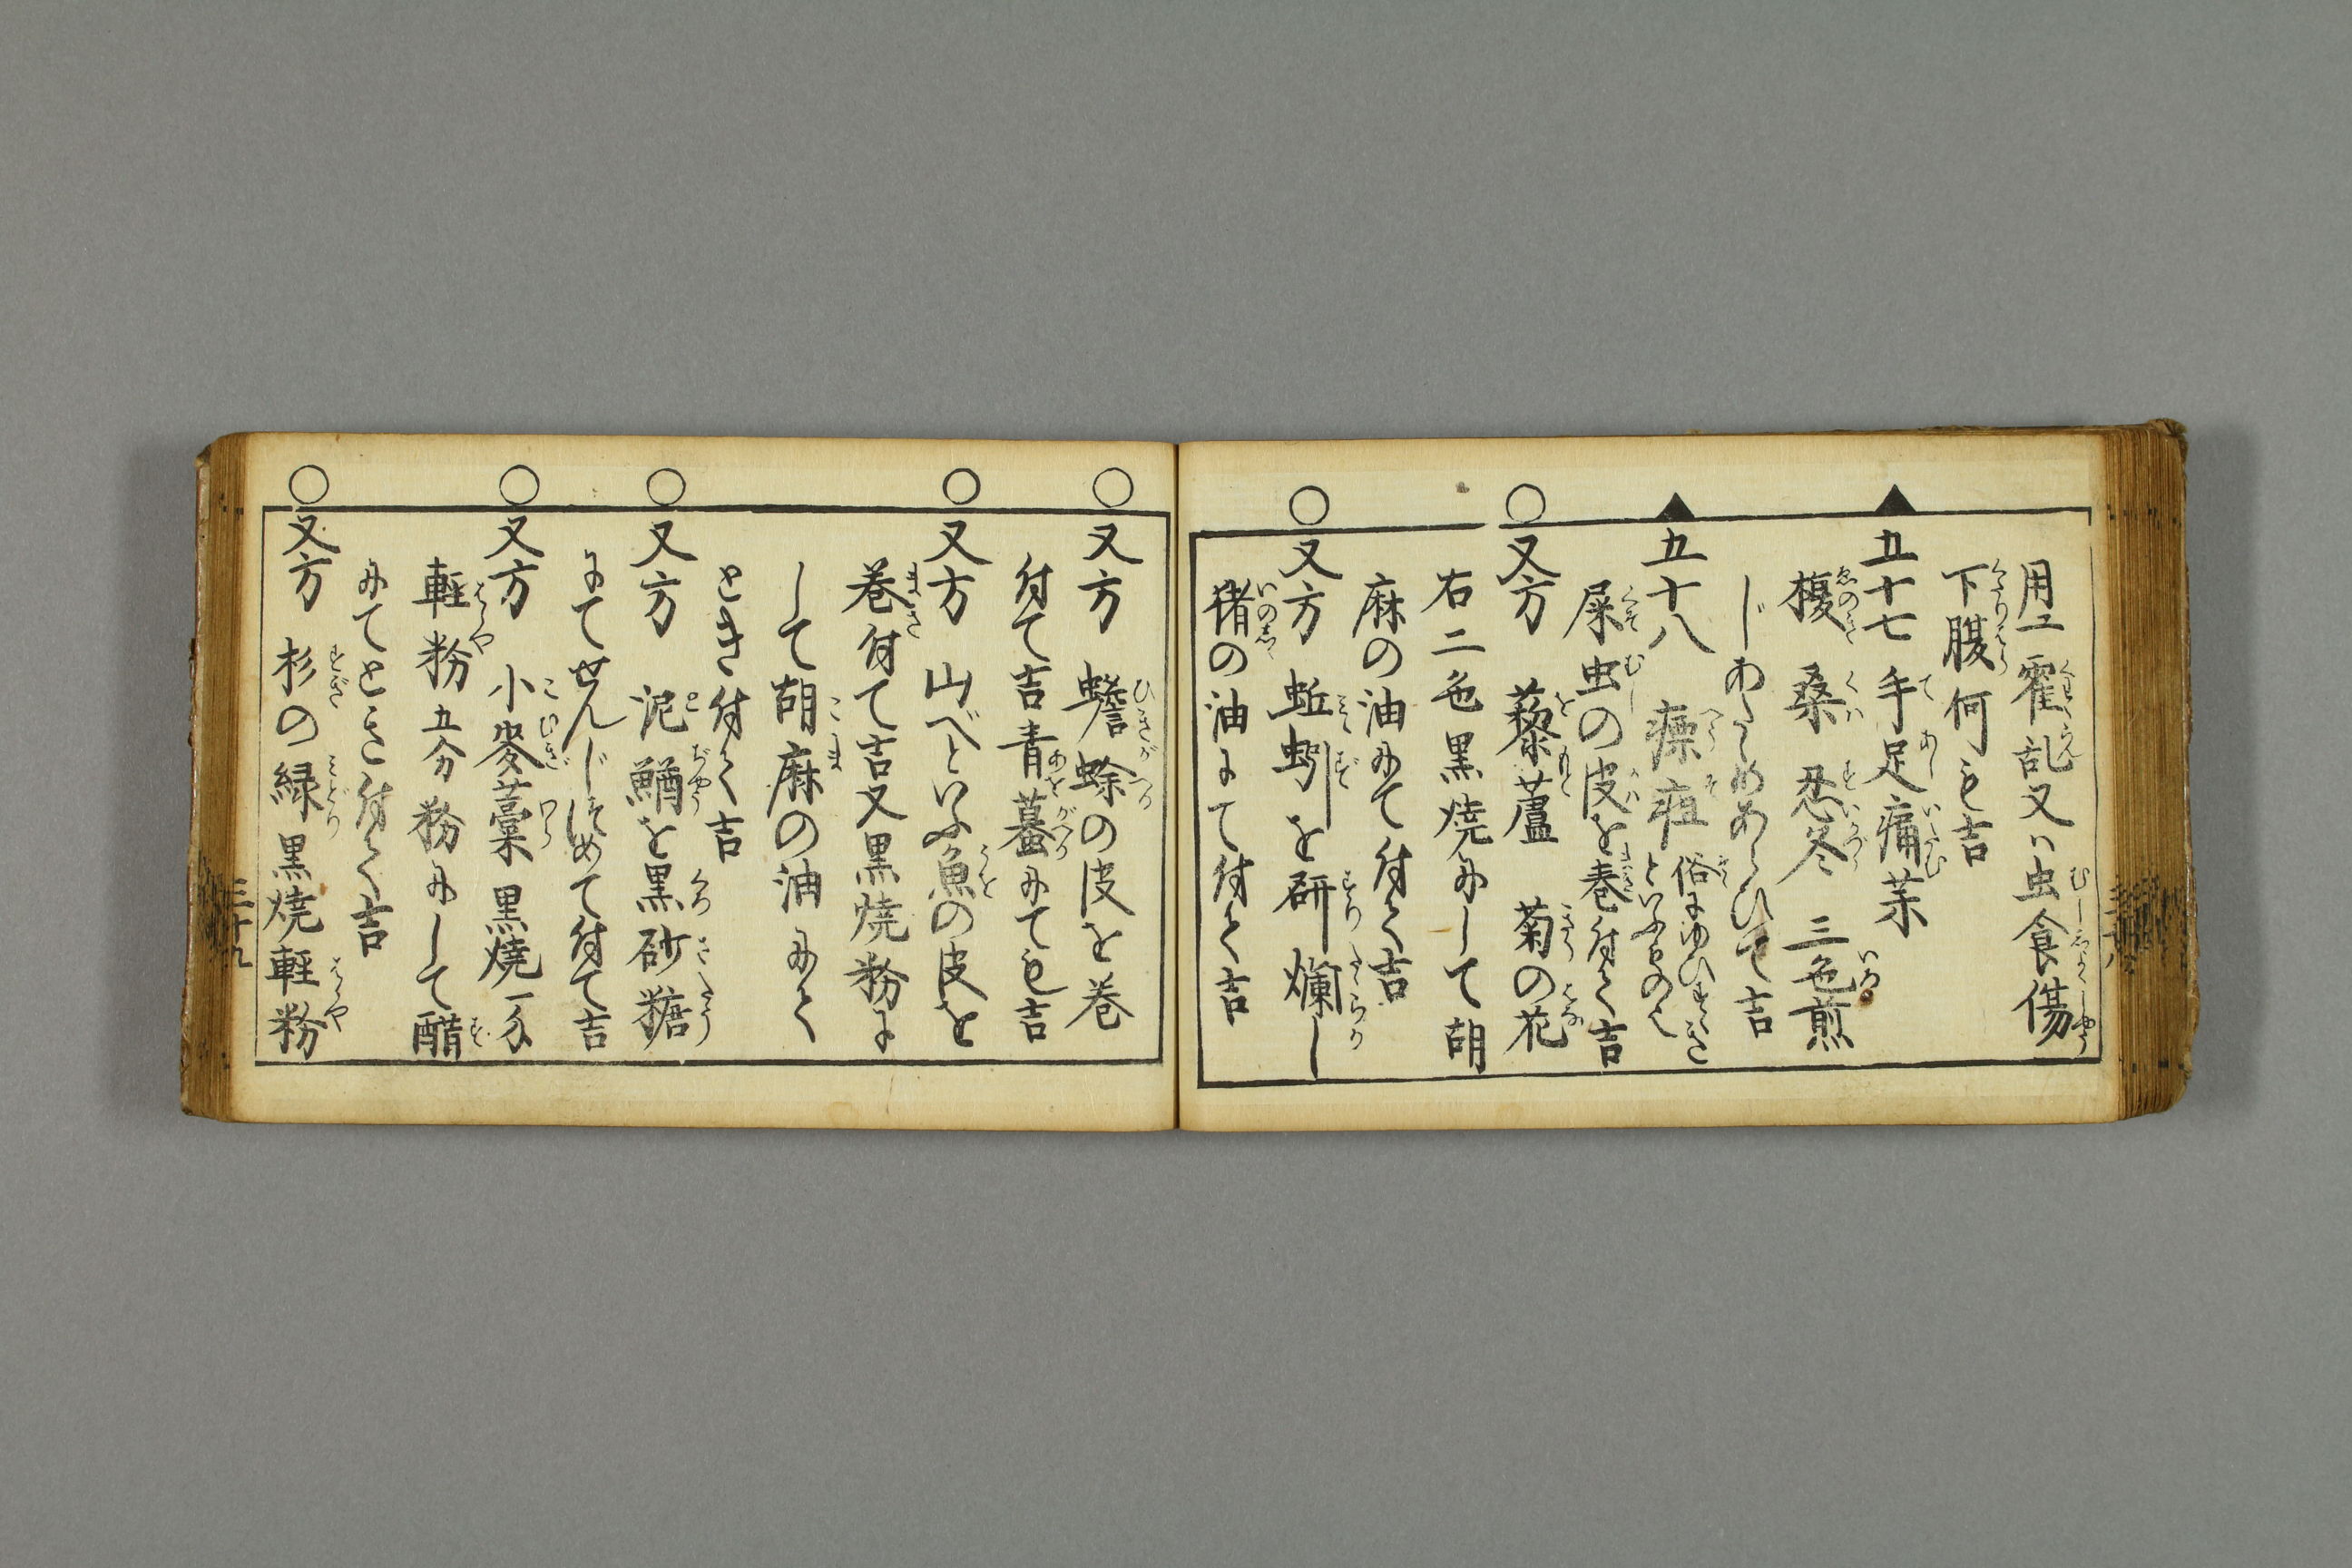 用ユ霍乱又ハ虫食傷
下腹何も吉
▲五十七 手足痛茱
榎 桑 忍冬 三色煎
じあたゝめあらひて吉
▲五十八 瘭疽 俗にゆひすき
といふもの也
屎虫の皮を巻付て吉
○又方 藜蘆 菊の花
右二色黒焼にして胡
麻の油にて付て吉
○又方 蚯蚓を研爛し
猪の油にて付て吉
○又方 蟾蜍の皮を巻
付て吉青蟇にても吉
○又方 山べといふ魚の皮を
巻付て吉又黒焼粉に
して胡麻の油にて
とき付て吉
○又方 泥鰌を黒砂糖
にてせんじつめて付て吉
○又方 小麥藁黒焼一匁
軽粉五分粉にして醋
にてとき付て吉
○又方 杉の緑黒焼軽粉
三十九